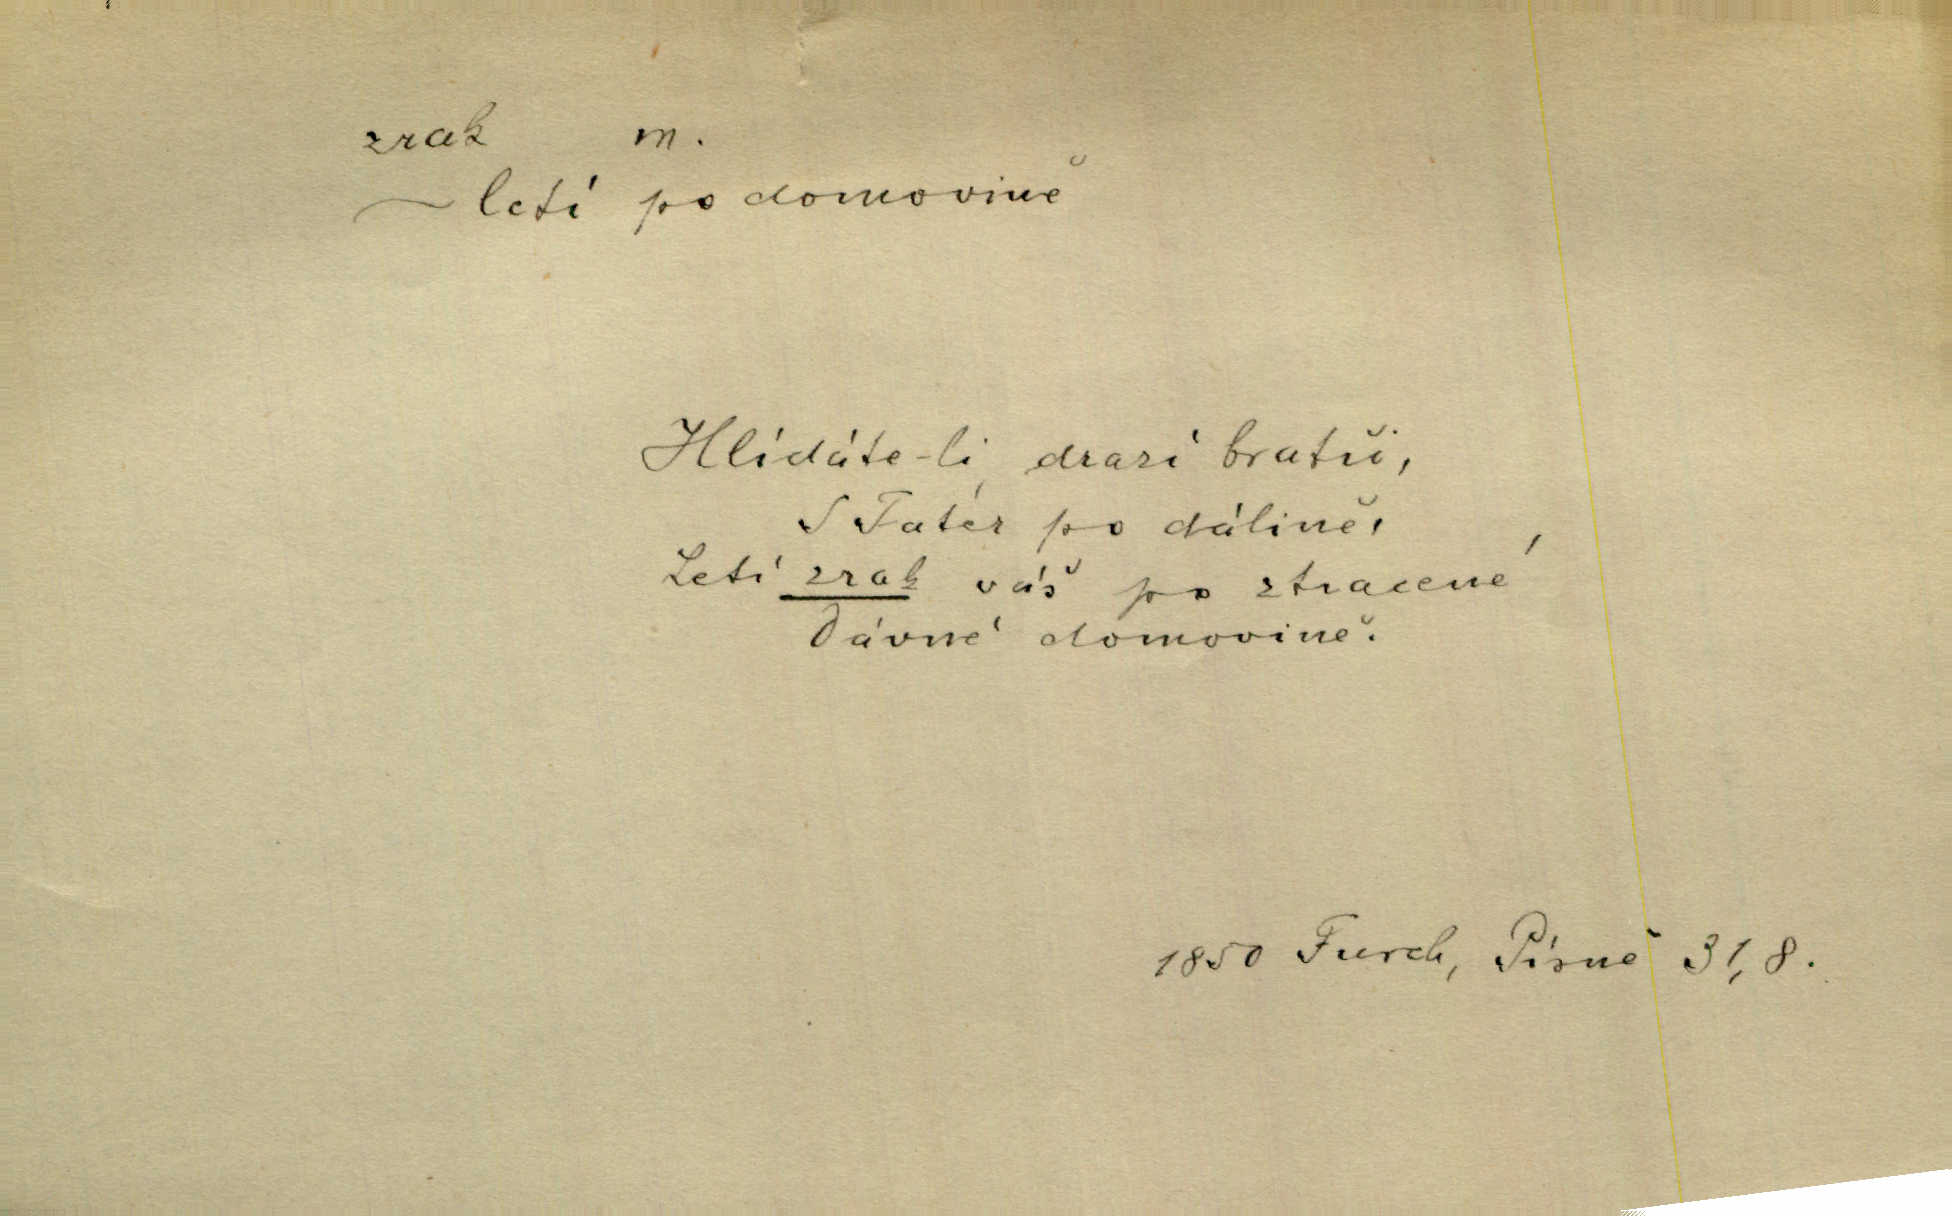 zrak m.
~ letí po domovině
Hlídáte-li, drazí bratři,
S Tater po dálině,
Letí zrak váš po ztracené,
Dávné domovině.
1850 Furch, Písně 31, 8.